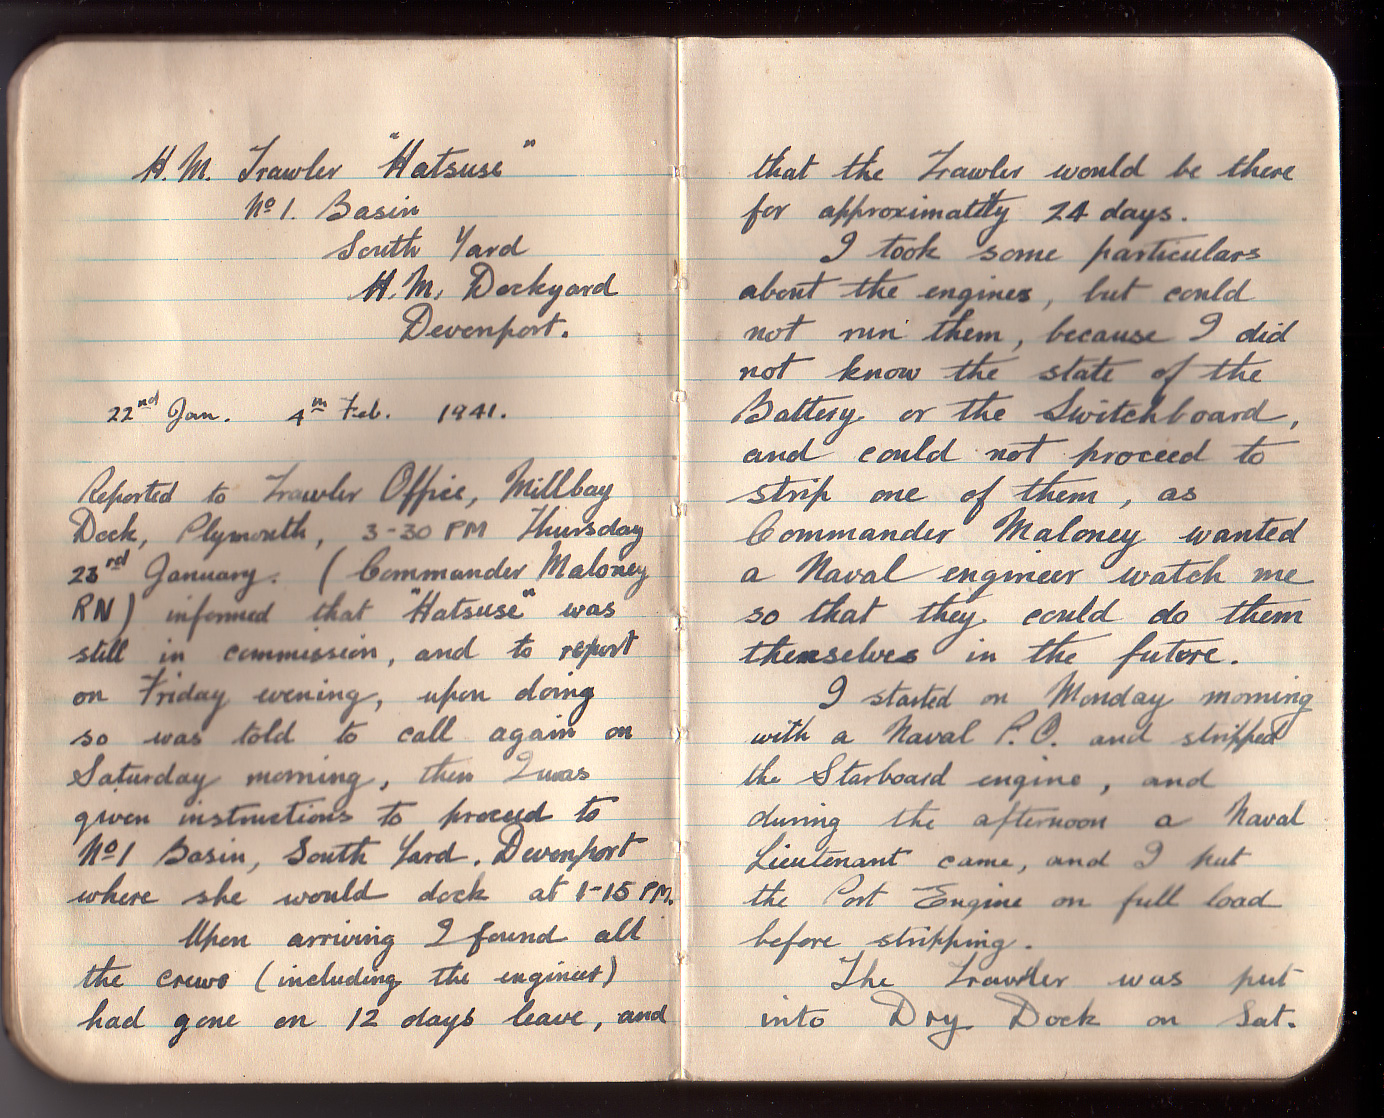 H.M. Trawler "Hatsuse"
No 1. Basin
South Yard
H.M. Dockyard
Devonport.
22nd Jan. 4th Feb. 1941.
Reported to Trawler Office, Millbay
Dock, Plymouth, 3-30 PM Thursday
23rd January. (Commander Maloney
RN) informed that "Hatsuse" was
still in commission, and to report
on Friday evening, upon doing
so was told to call again on
Saturday morning, then I was
given instructions to proceed to
No 1 Basin, South Yard. Devonport
where she would dock at 1-15 PM.
Upon arriving I found all
the crews (including the engineer)
had gone on 12 days leave, and
that the Trawler would be there
for approximatly 24 days.
I took some particulars
about the engines, but could
not run them, because I did
not know the state of the
Battery or the Switchboard,
and could not proceed to
strip one of them, as
Commander Maloney wanted
a Naval engineer watch me
so that they could do them
themselves in the future.
I started on Monday morning
with a Naval P.O. and stripped
the Starboard engine, and
during the afternoon a Naval
Lieutenant came, and I put
the Port Engine on full load
before stripping.
The Trawler was put
into Dry Dock on Sat.